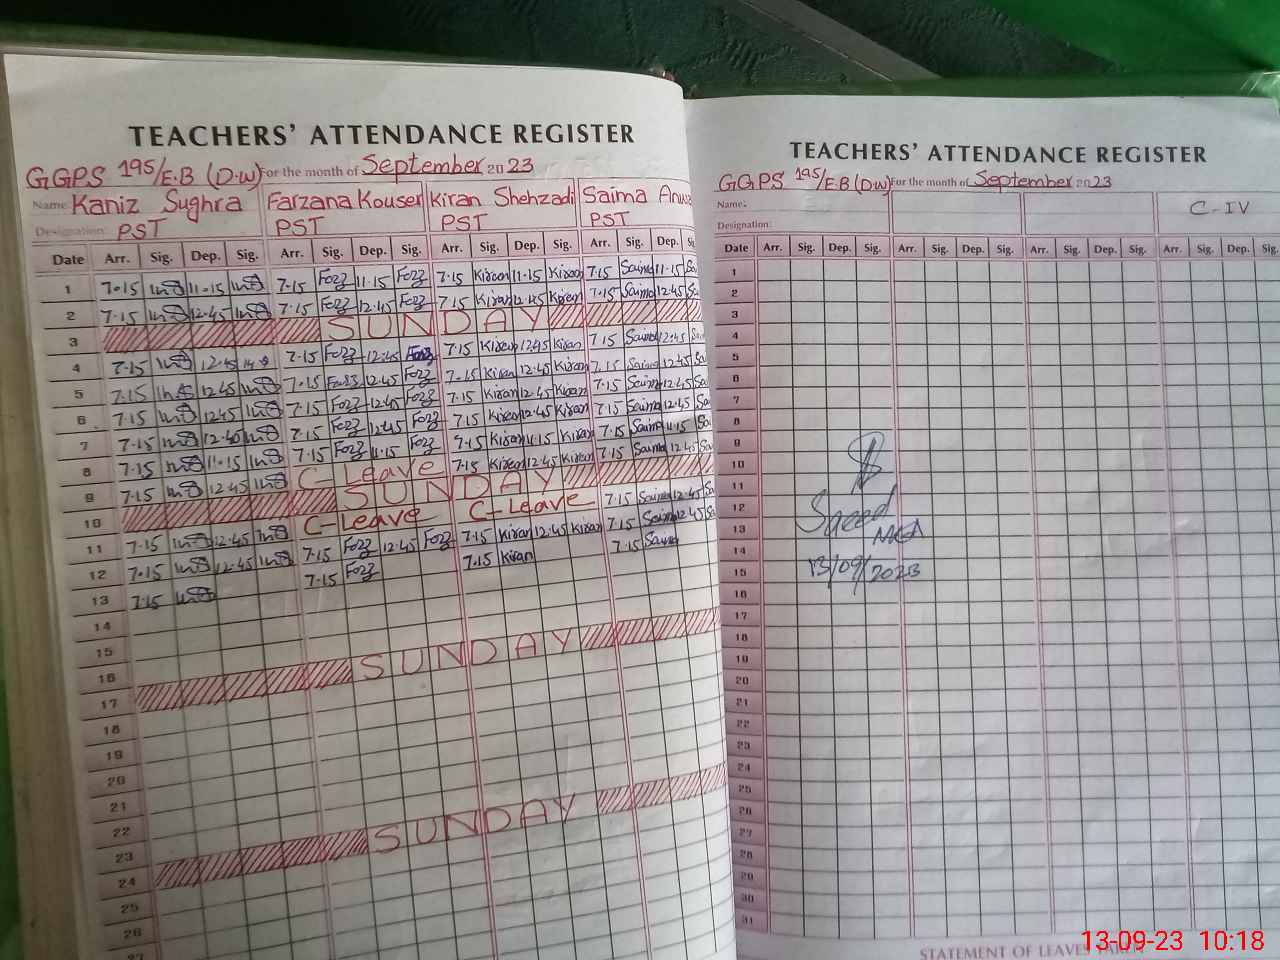 TEACHERS' ATTENDANCE REGISTER
GGPS 195/E.B (D.W) For the month of September 2023
Name: Kaniz Sughra Farzana Kouser Kiran Shehzadi Saima
Designation: PST PST PST PST
Date Arr. Sig. Dep. Sig. Arr. Sig. Dep. Sig. Arr. Sig. Dep. Sig. Arr. Sig. Dep.
1 7.15 11.15 7.15 Fozz 11.15 Fozz 7.15 Kiran 11.15 Kiran 7.15 Saima 11.15
2 7.15 12.45 7.15 Fozz 12.45 Fozz 7.15 Kiran 12.45 Kiran 7.15 Saima 12.45
3 SUNDAY
4 7.15 12.45 7.15 Fozz 12.45 Fozz 7.15 Kiran 12.45 Kiran 7.15 Saima 12.45
5 7.15 12.45 7.15 Fozz 12.45 Fozz 7.15 Kiran 12.45 Kiran 7.15 Saima 12.45
6 7.15 12.45 7.15 Fozz 12.45 Fozz 7.15 Kiran 12.45 Kiran 7.15 Saima 12.45
7 7.15 12.45 7.15 Fozz 12.45 Fozz 7.15 Kiran 12.45 Kiran 7.15 Saima 12.45
8 7.15 11.15 7.15 Fozz 11.15 Fozz 7.15 Kiran 11.15 Kiran 7.15 Saima 11.15
9 7.15 12.45 C-Leave 7.15 Kiran 12.45 Kiran 7.15 Saima 12.45
10 SUNDAY
11 7.15 12.45 C-Leave C-Leave 7.15 Saima 12.45
12 7.15 12.45 7.15 Fozz 12.45 Fozz 7.15 Kiran 12.45 Kiran 7.15 Saima 12.45
13 7.15 7.15 Fozz 7.15 Kiran 7.15 Saima
14
15
16
17 SUNDAY
18
19
20
21
22
23
24 SUNDAY
25
26
27
TEACHERS' ATTENDANCE REGISTER
GGPS 195/E.B (D.W) For the month of September 2023
Name: C-IV
Designation:
Date Arr. Sig. Dep. Sig. Arr. Sig. Dep. Sig. Arr. Sig. Dep. Sig. Arr. Sig. Dep. Sig.
1
2
3
4
5
6
7
8
9
10
11
12 Saeed
13 MEA
14
15 13/09/2023
16
17
18
19
20
21
22
23
24
25
26
27
28
29
30
31
STATEMENT OF LEAVES
13-09-23 10:18